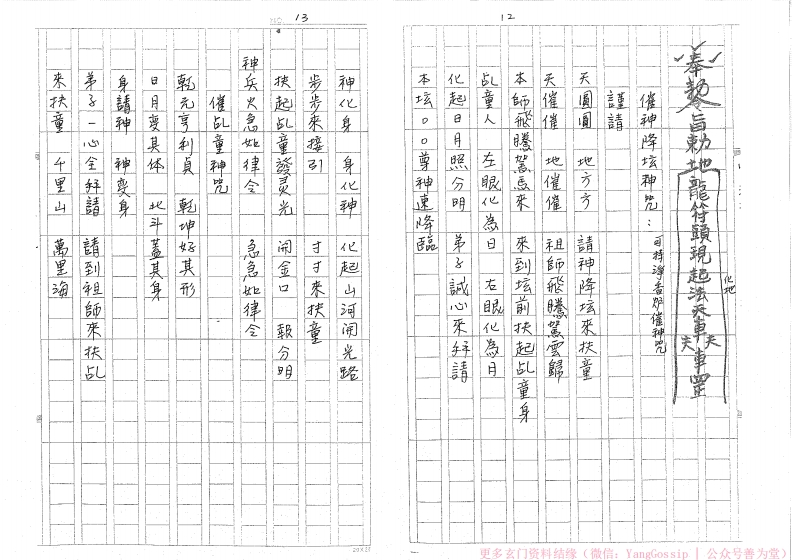 12
奉勅令旨勅地龍符頭現起法天車車罡
夫 夫
化地
催神降坛神咒：可持淨香炉催神咒
謹請
天圓圓 地方方 請神降坛來扶童
天催催 地催催 祖師飛騰駕雲歸
本師飛騰駕馬來 來到坛前扶起乩童身
乩童人 左眼化為日 右眼化為月
化起日月照分明 弟子誠心來拜請
本坛○○尊神速降臨
13
神化身 身化神 化起山河開光路
步步來接引 寸寸來扶童
扶起乩童發灵光 開金口 報分明
神兵火急如律令 急急如律令
催乩童神咒
乾元亨利貞 乾坤好其形
日月变其体 北斗蓋其身
身請神 神变身
弟子一心全拜請 請到祖師來扶乩
來扶童 千里山 萬里海
20×25
更多玄门资料结缘（微信：YangGossip | 公众号善为堂）